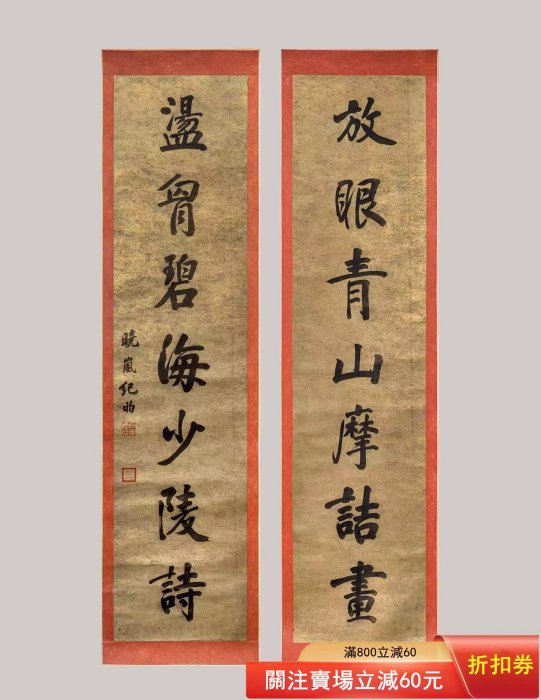 放眼青山摩詰畫
盪胷碧海少陵詩
曉嵐紀昀
滿800立減60
關注賣場立減60元
折扣券